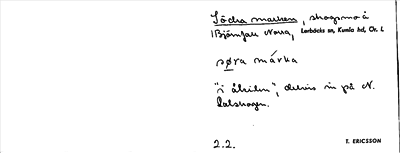 Södra marken, skogsmo å
Björnfall Norra, Lerbäcks sn, Kumla hd, Ör. l.
søra márka
"i åkrar", delvis in på N.
2.2. T. ERICSSON